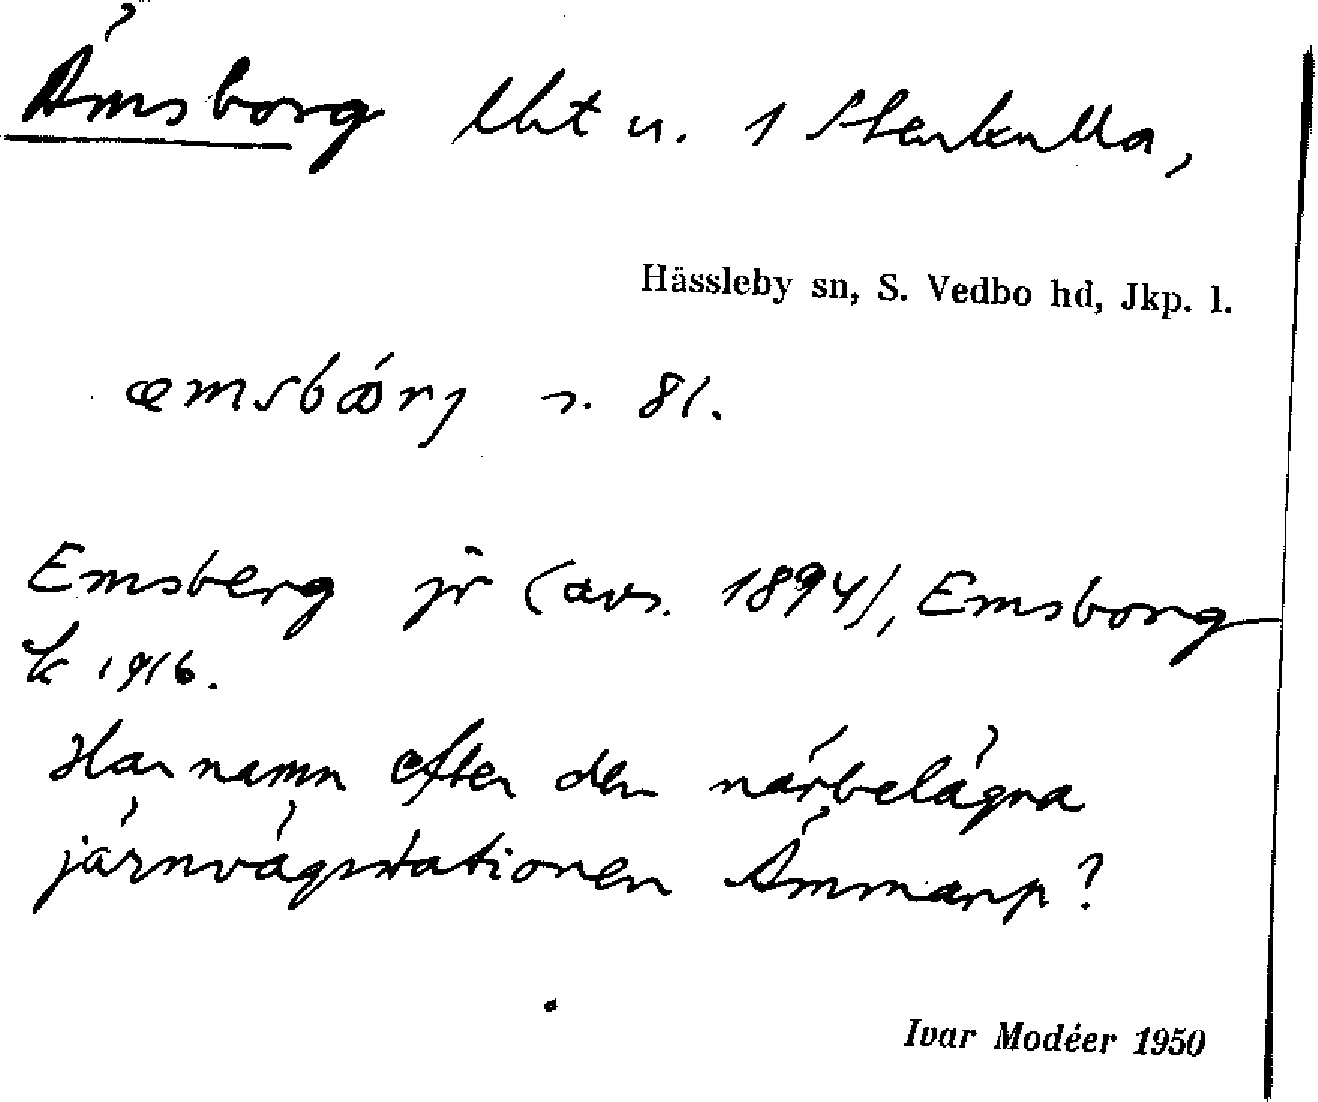 Ämsborg lht u. 1 Stenkulla,
Hässleby sn, S. Vedbo hd, Jkp. l.
æmsbórj s. 81.
Emsberg jr (avs. 1894), Emsborg
k 1916.
Har namn efter den närbelägna
järnvägsstationen Ämmarp?
Ivar Modéer 1950